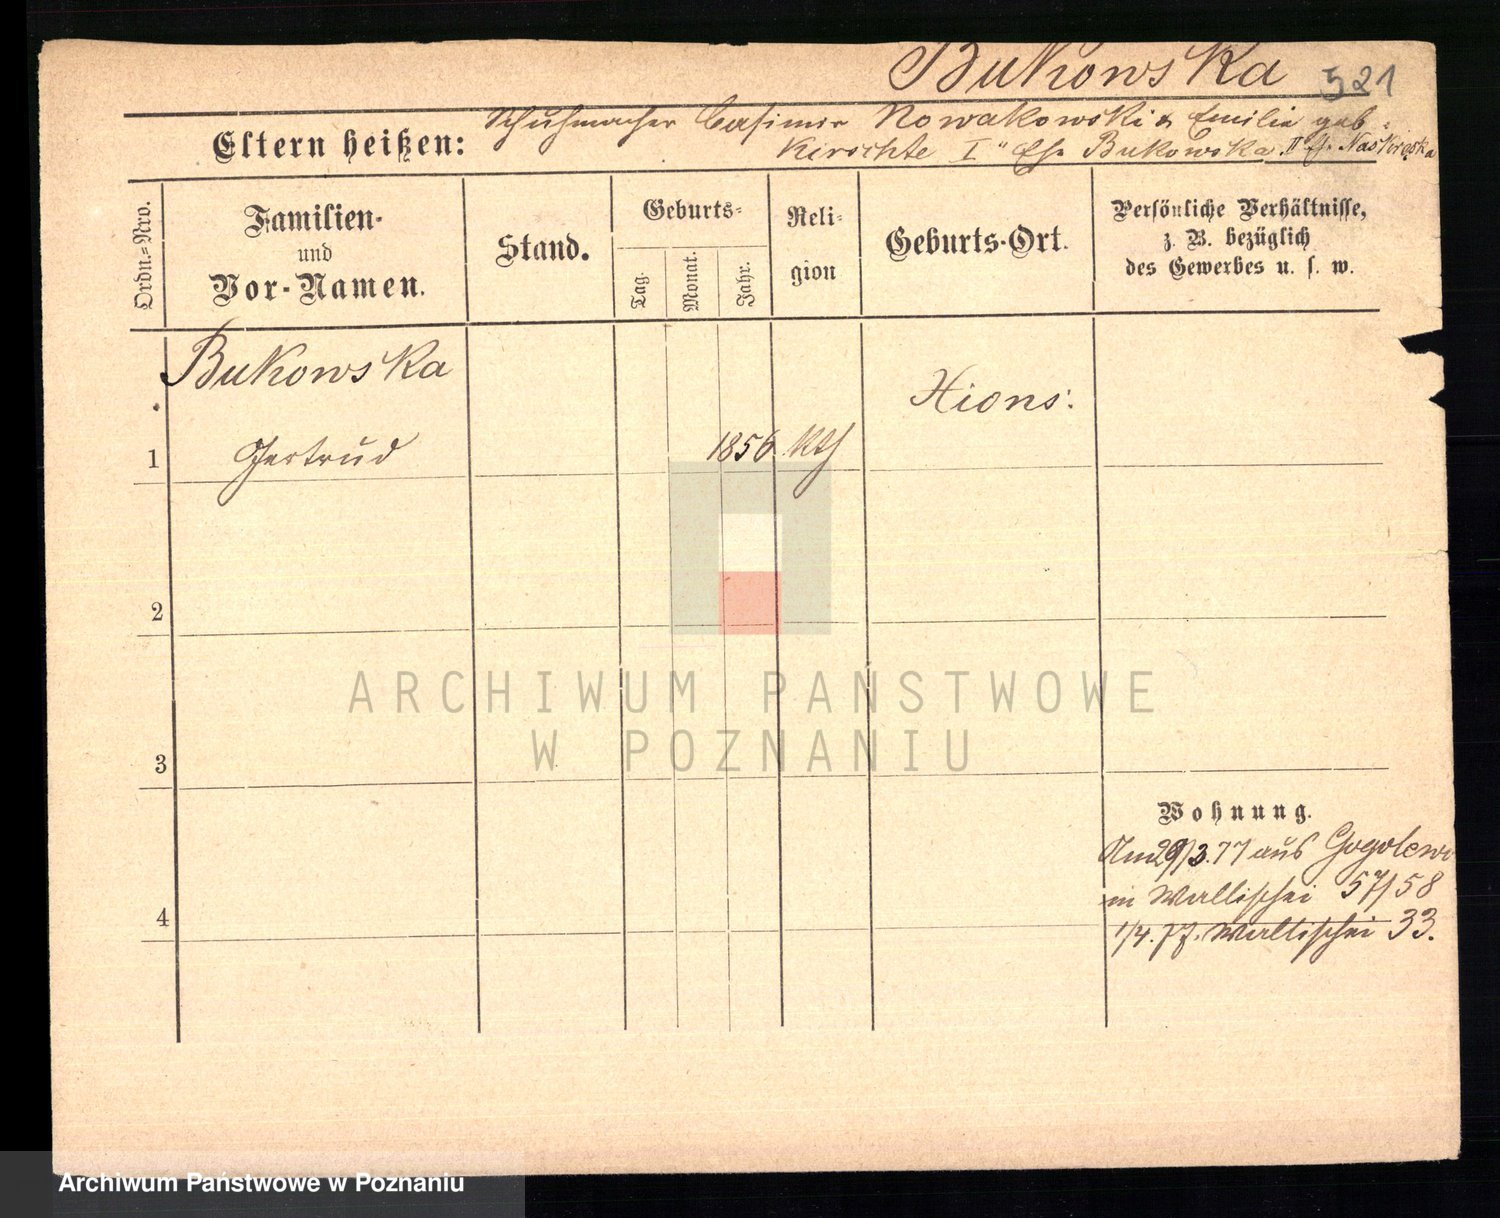 Bukowska 521
Eltern heißen: Schuhmacher Casimir Nowakowski & Emilie geb.
Kirschte I" Eh. Bukowska. II Eh. Naskręska
Ordn.=Nro.
Familien-
und
Vor-Namen.
Stand.
Geburts-
Tag.
Monat.
Jahr.
Reli-
gion
Geburts-Ort.
Persönliche Verhältnisse,
z. B. bezüglich
des Gewerbes u. s. w.
Bukowska
Xions.
1 Gertrud 1856 kth
2
3
4
Wohnung.
Am 29/3.77 aus Gogolewo
in Wallischei 57/58
1/4. 77. Wallischei 33.
ARCHIWUM PAŃSTWOWE
W POZNANIU
Archiwum Państwowe w Poznaniu